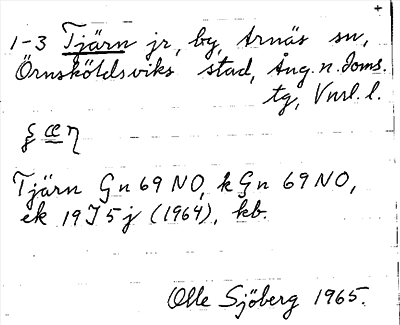 1-3 Tjärn jr, by, Arnäs sn,
Örnsköldsviks stad, Ång. n. doms.
tg, Vnrl. l.
ɕ æ η
Tjärn Gn 69 NO, k Gn 69 NO,
ek 19 J 5 j (1964), kb.
Olle Sjöberg 1965.